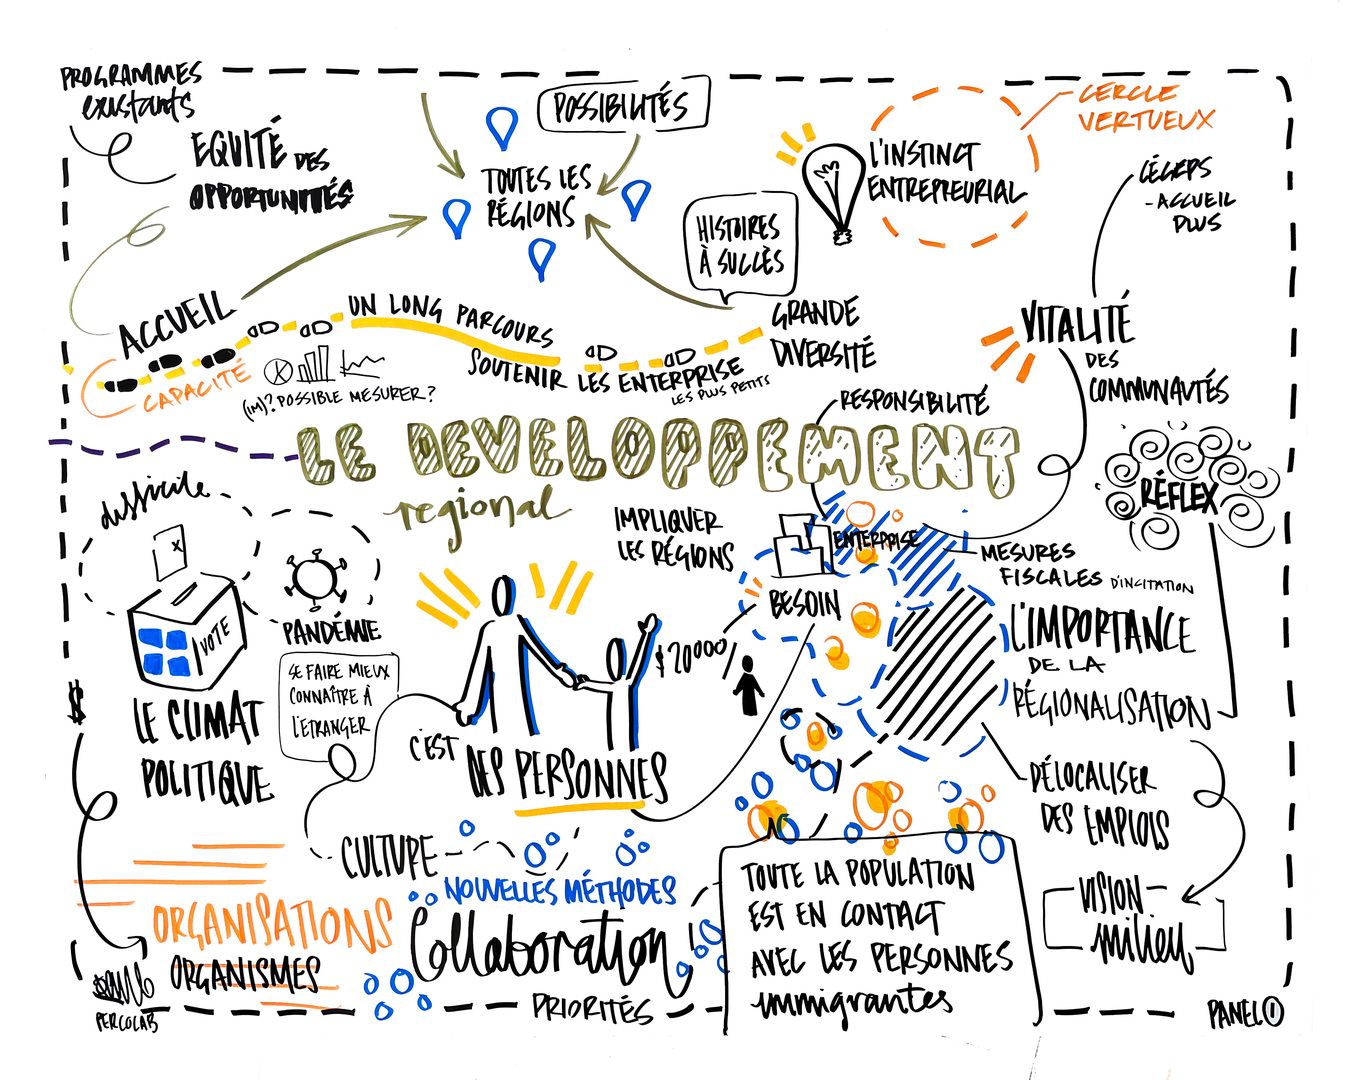 PROGRAMMES
existants
EQUITÉ DES
OPPORTUNITÉS
POSSIBILITÉS
TOUTES LES
RÉGIONS
HISTOIRES
À SUCCÈS
L'INSTINCT
ENTREPREURIAL
CERCLE
VERTUEUX
CÉGEPS
- ACCUEIL
PLUS
ACCUEIL
CAPACITÉ
UN LONG PARCOURS
SOUTENIR LES ENTERPRISE
LES PLUS PETITS
(IM)? POSSIBLE MESURER?
GRANDE
DIVERSITÉ
VITALITÉ
DES
COMMUNAUTÉS
RESPONSIBILITÉ
LE DEVELOPPEMENT
regional
RÉFLEX
difficile
X
VOTE
LE CLIMAT
POLITIQUE
PANDÉMIE
SE FAIRE MIEUX
CONNAÎTRE À
L'ETRANGER
IMPLIQUER
LES RÉGIONS
ENTERPRISE
BESOIN
$20000/
MESURES
FISCALES D'INCITATION
L'IMPORTANCE
DE LA
RÉGIONALISATION
DÉLOCALISER
DES EMPLOIS
VISION
milieu
C'EST DES PERSONNES
$
CULTURE
NOUVELLES MÉTHODES
Collaboration
PRIORITÉS
ORGANISATIONS
ORGANISMES
TOUTE LA POPULATION
EST EN CONTACT
AVEC LES PERSONNES
immigrantes
PERCOLAB
PANEL 1